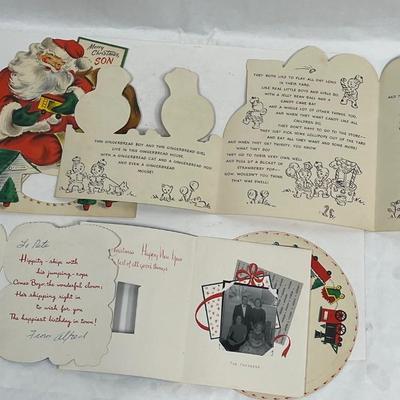 Merry
Christmas,
SON
THIS GINGERBREAD BOY AND THIS GINGERBREAD GIRL
LIVE IN THIS GINGERBREAD HOUSE
WITH A GINGERBREAD CAT AND A GINGERBREAD DOG
AND EVEN A GINGERBREAD
MOUSE!
THEY BOTH LIKE TO PLAY ALL DAY LONG
IN THEIR YARD,
LIKE REAL LITTLE BOYS AND GIRLS DO,
WITH A JELLY BEAN BALL AND A
CANDY CANE BAT
AND A WHOLE LOT OF OTHER THINGS, TOO.
AND WHEN THEY WANT CANDY LIKE ALL
CHILDREN DO,
THEY DON'T HAVE TO GO TO THE STORE—
THEY JUST PICK SOME LOLLYPOPS OUT OF THE YARD
AND EAT ALL THEY WANT AND SOME MORE!
AND WHEN THEY GET THIRSTY, YOU KNOW
WHAT THEY DO?
THEY GO TO THEIR VERY OWN WELL
AND PULL UP A BUCKET OF
STRAWBERRY POP—
NOW, WOULDN'T YOU THINK
THAT WAS SWELL!
AND
To Pete
Hippity-skips with
his jumping-rope
Comes Bozo the wonderful clown;
He's skipping right in
to wish for you
The happiest birthday in town!
From Alfred
Christmas Happy New Year
best of all good things
THE